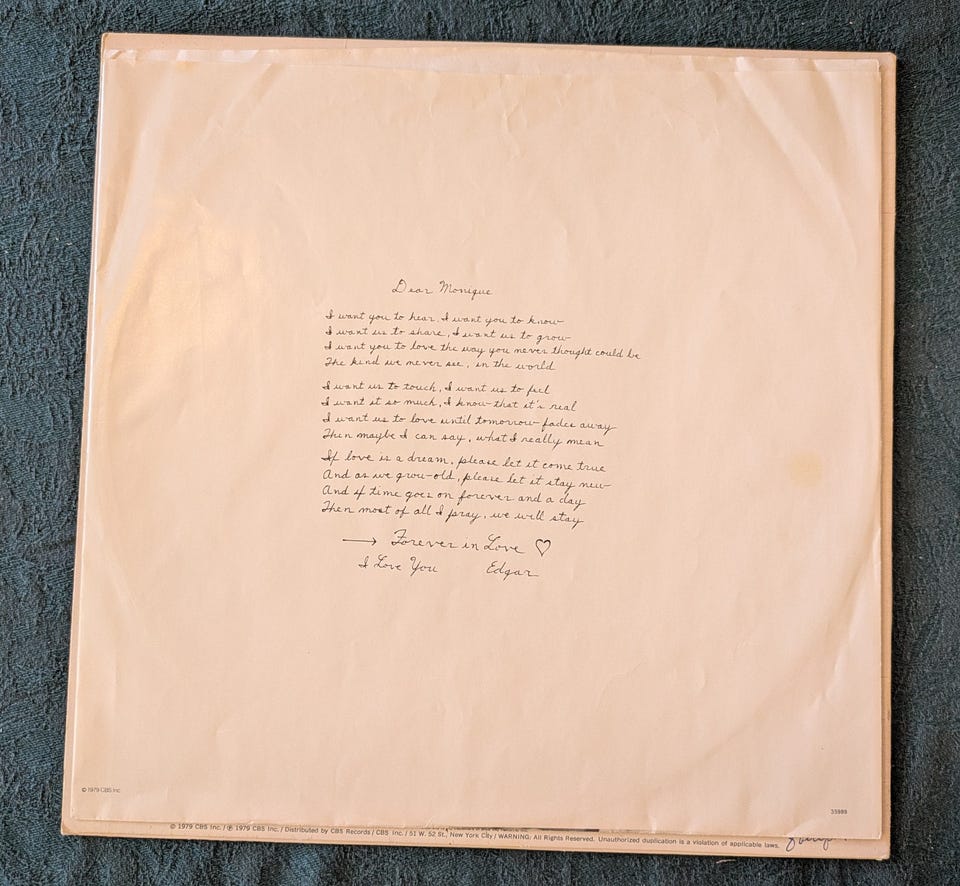 Dear Monique
I want you to hear, I want you to know
I want us to share, I want us to grow
I want you to love the way you never thought could be
The kind we never see, in the world
I want us to touch, I want us to feel
I want it so much, I know that it's real
I want us to love until tomorrow fades away
Then maybe I can say, what I really mean
If love is a dream, please let it come true
And as we grow old, please let it stay new
And if time goes on forever and a day
Then most of all I pray, we will stay
→ Forever in Love ♡
I Love You Edgar
© 1979 CBS Inc.
35989
© 1979 CBS Inc. / ℗ 1979 CBS Inc. / Distributed by CBS Records / CBS Inc. / 51 W. 52 St., New York City / WARNING: All Rights Reserved. Unauthorized duplication is a violation of applicable laws.